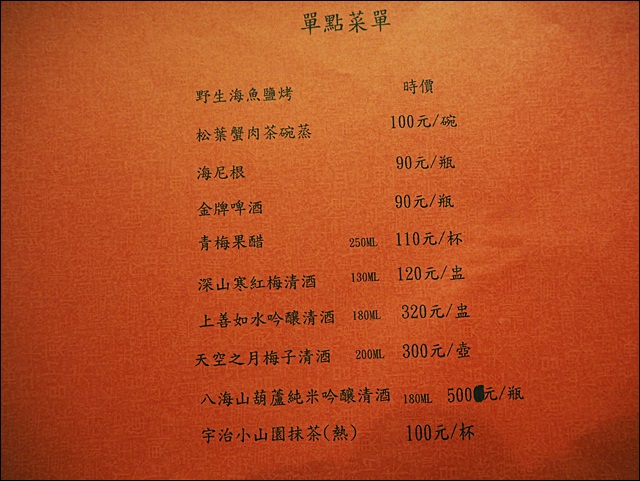 單點菜單
野生海魚鹽烤 時價
松葉蟹肉茶碗蒸 100元/碗
海尼根 90元/瓶
金牌啤酒 90元/瓶
青梅果醋 250ML 110元/杯
深山寒紅梅清酒 130ML 120元/盅
上善如水吟釀清酒 180ML 320元/盅
天空之月梅子清酒 200ML 300元/壺
八海山葫蘆純米吟釀清酒 180ML 500元/瓶
宇治小山園抹茶(熱) 100元/杯